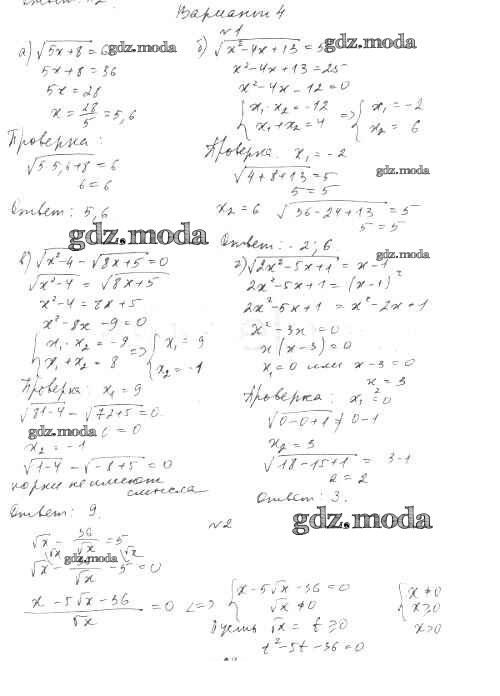 Вариант 4
№1
а) √5x+8 = 6
5x+8 = 36
5x = 28
x = 28/5 = 5,6
Проверка:
√5·5,6+8 = 6
6 = 6
Ответ: 5,6
б) √x²-4x+13 = 5
x²-4x+13 = 25
x²-4x-12 = 0
{ x₁·x₂ = -12 => { x₁ = -2
x₁+x₂ = 4 x₂ = 6
Проверка: x₁ = -2
√4+8+13 = 5
5 = 5
x₂ = 6 √36-24+13 = 5
5 = 5
Ответ: -2; 6
в) √x²-4 - √8x+5 = 0
√x²-4 = √8x+5
x²-4 = 8x+5
x²-8x-9 = 0
{ x₁·x₂ = -9 => { x₁ = 9
x₁+x₂ = 8 x₂ = -1
Проверка: x₁ = 9
√81-4 - √72+5 = 0
= 0
x₂ = -1
√1-4 - √-8+5 = 0
корни не имеют
смысла
Ответ: 9.
г) √2x²-5x+1 = x-1
2x²-5x+1 = (x-1)²
2x²-5x+1 = x²-2x+1
x²-3x = 0
x(x-3) = 0
x₁ = 0 или x-3 = 0
x₂ = 3
Проверка: x₁ = 0
√0-0+1 ≠ 0-1
x₂ = 3
√18-15+1 = 3-1
2 = 2
Ответ: 3.
№2
√x - 36/√x = 5
√x - /√x - 5 = 0
x-5√x-36/√x = 0 <=> { x-5√x-36 = 0 { x ≠ 0
√x ≠ 0 x ≥ 0
x > 0
Пусть √x = t ≥ 0
t²-5t-36 = 0
gdz.moda
gdz.moda
gdz.moda
gdz.moda
gdz.moda
gdz.moda
gdz.moda
gdz.moda